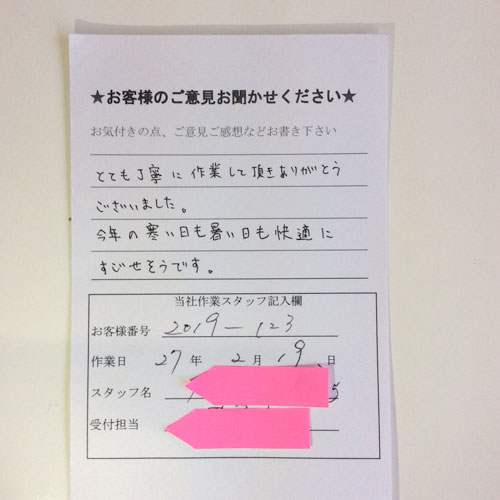 ★お客様のご意見お聞かせください★
お気付きの点、ご意見ご感想などお書き下さい
とても丁寧に作業して頂きありがとう
ございました。
今年の寒い日も暑い日も快適に
すごせそうです。
当社作業スタッフ記入欄
お客様番号 2019-123
作業日 27年 2月 19日
スタッフ名
受付担当